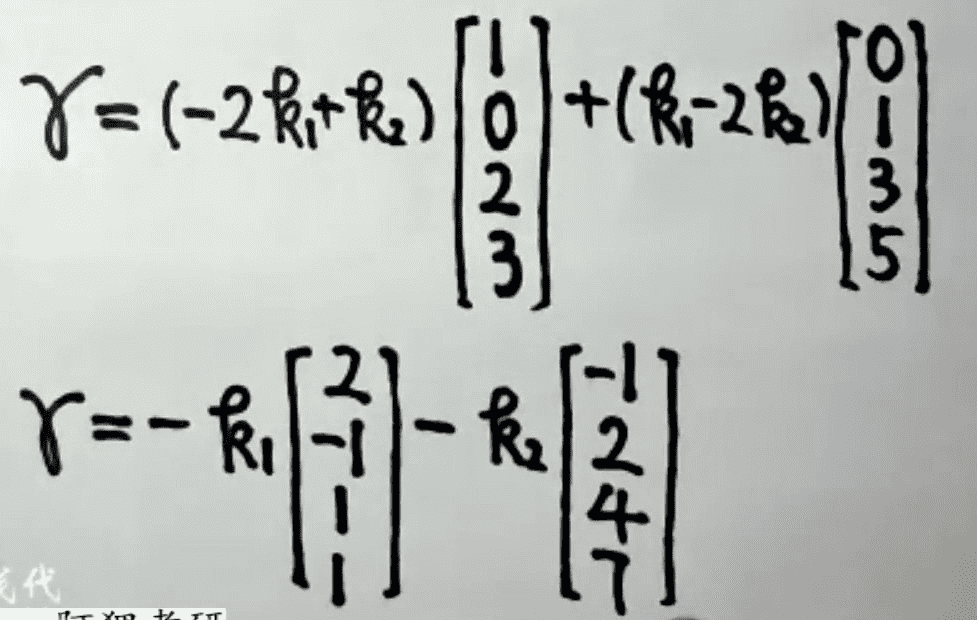 γ=(-2k₁+k₂)[1 0 2 3]+(k₁-2k₂)[0 1 3 5]
γ=-k₁[2 -1 1 1]-k₂[-1 2 4 7]